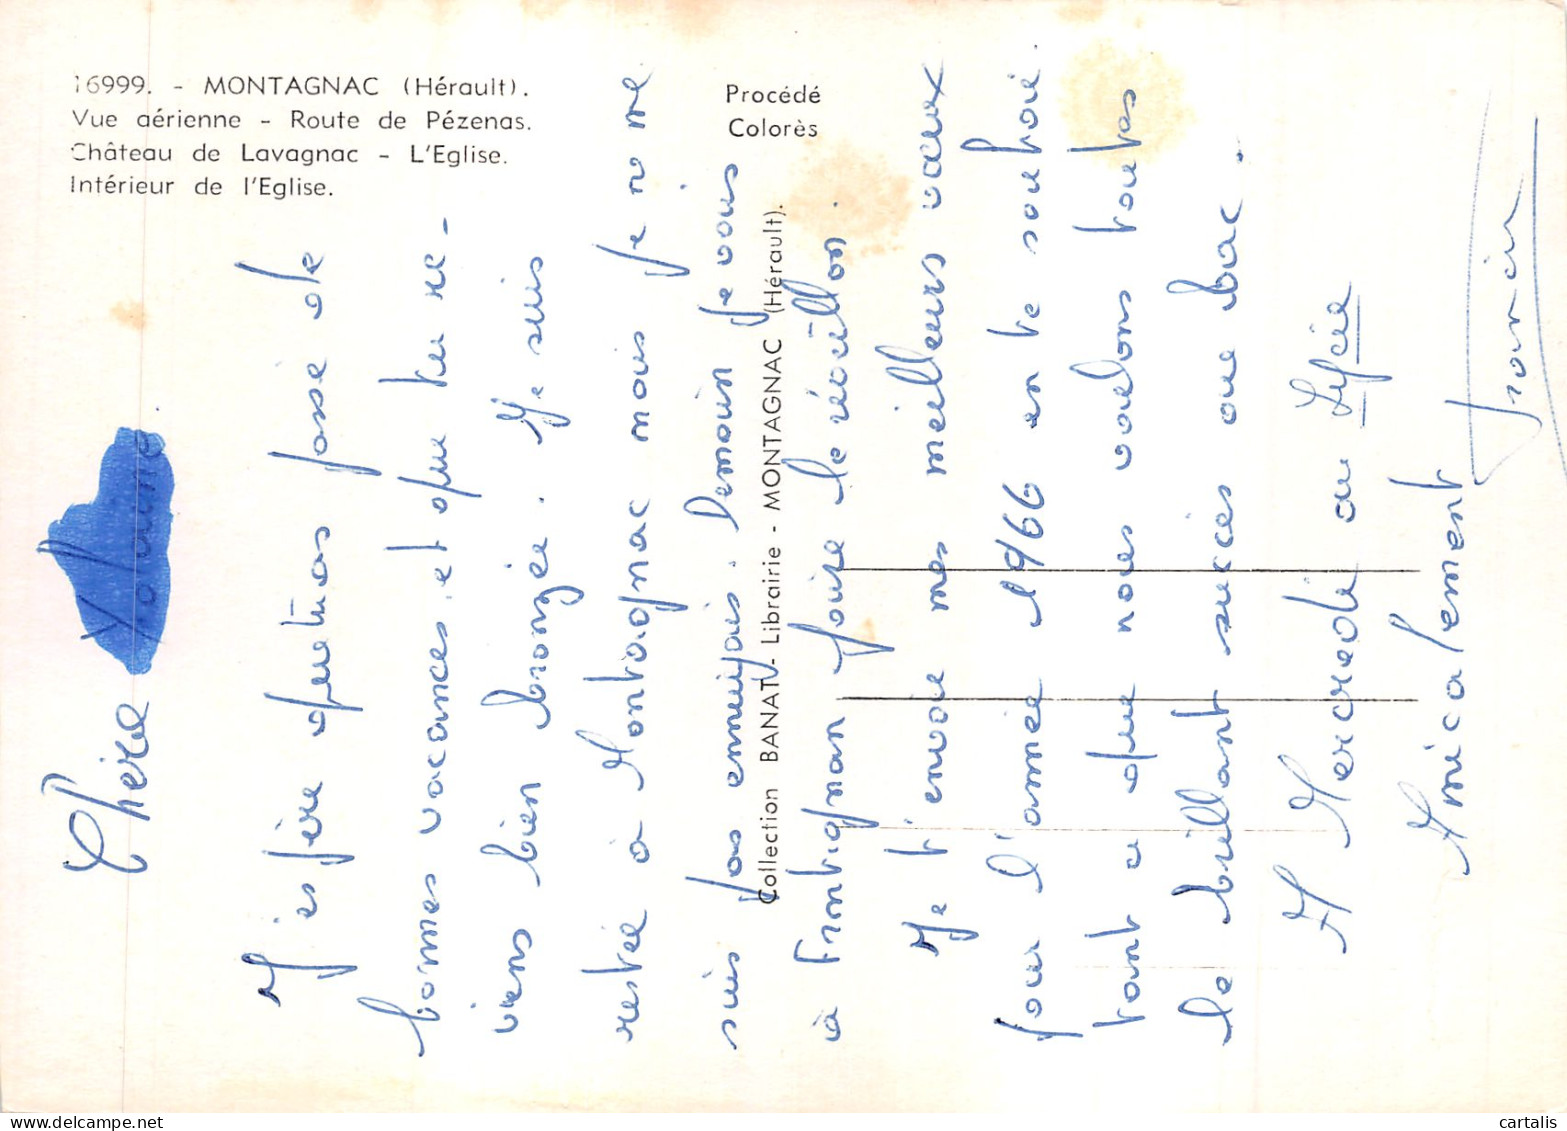 16999. - MONTAGNAC (Hérault).
Vue aérienne - Route de Pézenas.
Château de Lavagnac - L'Eglise.
Intérieur de l'Eglise.
Procédé
Colorès
Collection BANATV - Librairie - MONTAGNAC (Hérault).
Chère
J'espère que tu as passé de
bonnes vacances et que tu re-
viens bien bronzée. Je suis
restée à Montagnac mais je ne me
suis pas ennuyais. Demain je vais
à Frontignan faire le réveillon.
Je t'envoie mes meilleurs vœux
pour l'année 1966 en te souhai.
tant a que nous voulons toutes
le brillant succès au bac.
A Mercredi au Lycée
Amicalement
cartalis